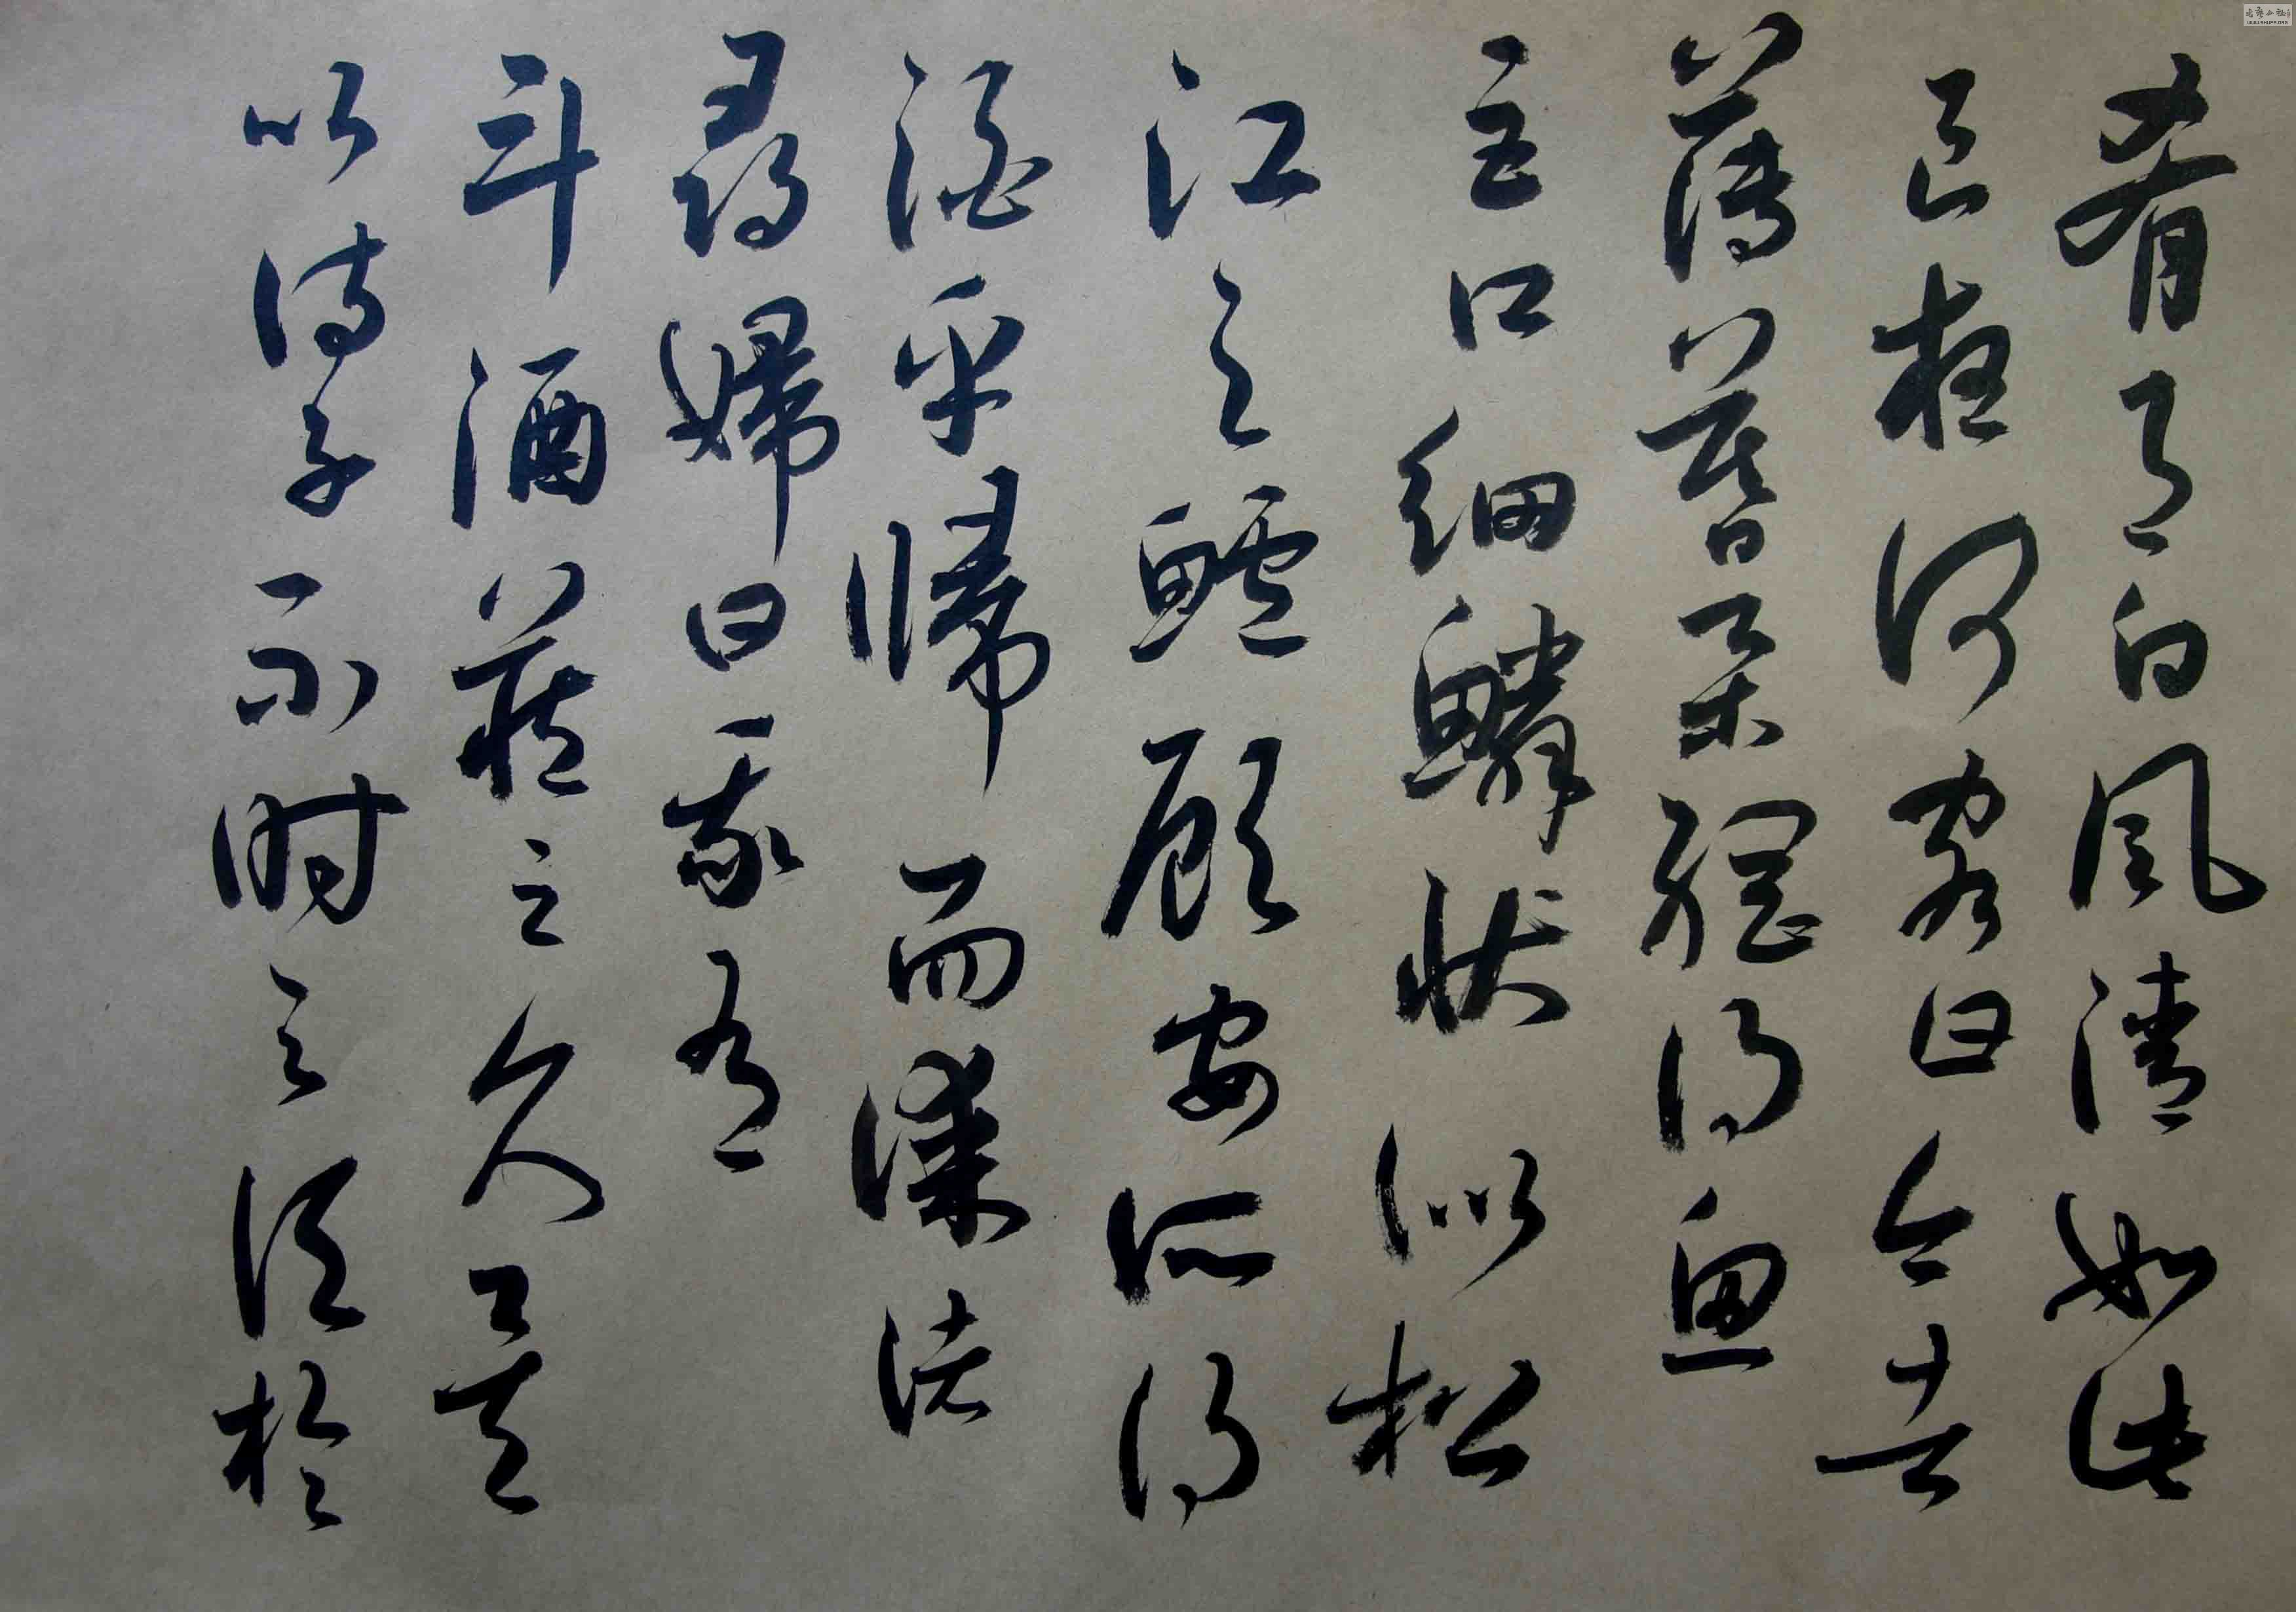 肴月白風清如此
良夜何客曰今者
薄暮舉網得魚
巨口細鱗狀似松
江之鱸顧安所得
酒乎歸而謀諸
婦婦曰我有
斗酒藏之久矣
以待子不時之須於
WWW.SHUFR.ORG